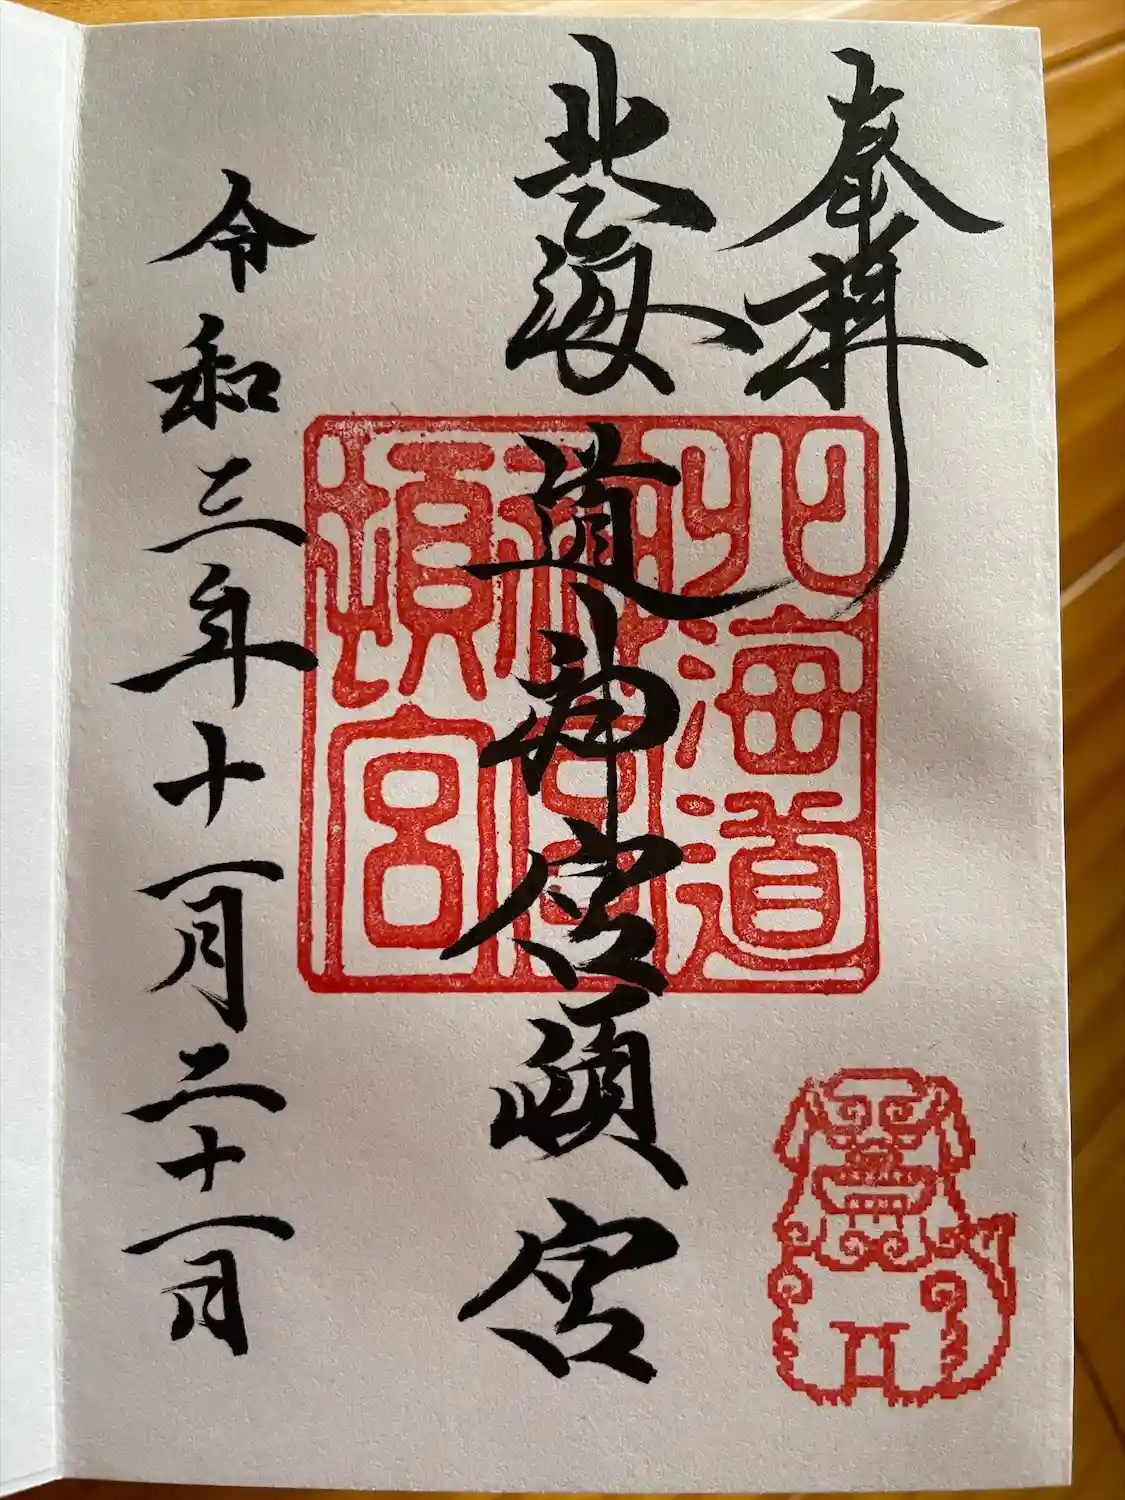 奉拝
北海道神宮頓宮
令和三年十一月二十一日
北海道
神宮
頓宮